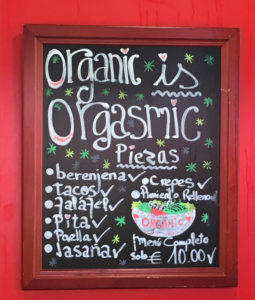 organic is
orgasmic
Piezas
• berenjena ✓
• tacos ✓
• falafel ✓
• pita ✓
• Paella ✓
• lasaña ✓
• Crepes ✓
• Pimiento Relleno ✓
ORGANIC
Menú Completo
Solo € 10.00 ✓